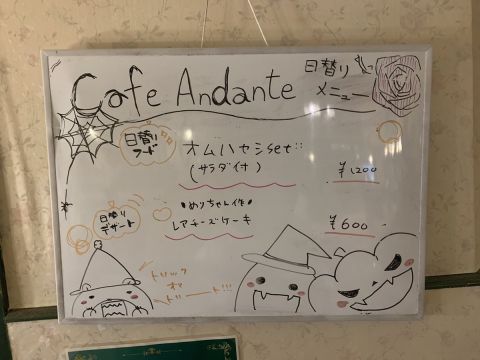 Cafe Andante
日替り
メニュー
日替り
フード
オムハヤシset
(サラダ付)
¥1200
日替り
デザート
めりちゃん作
レアチーズケーキ
¥600
トリック
オア
トリート!!!